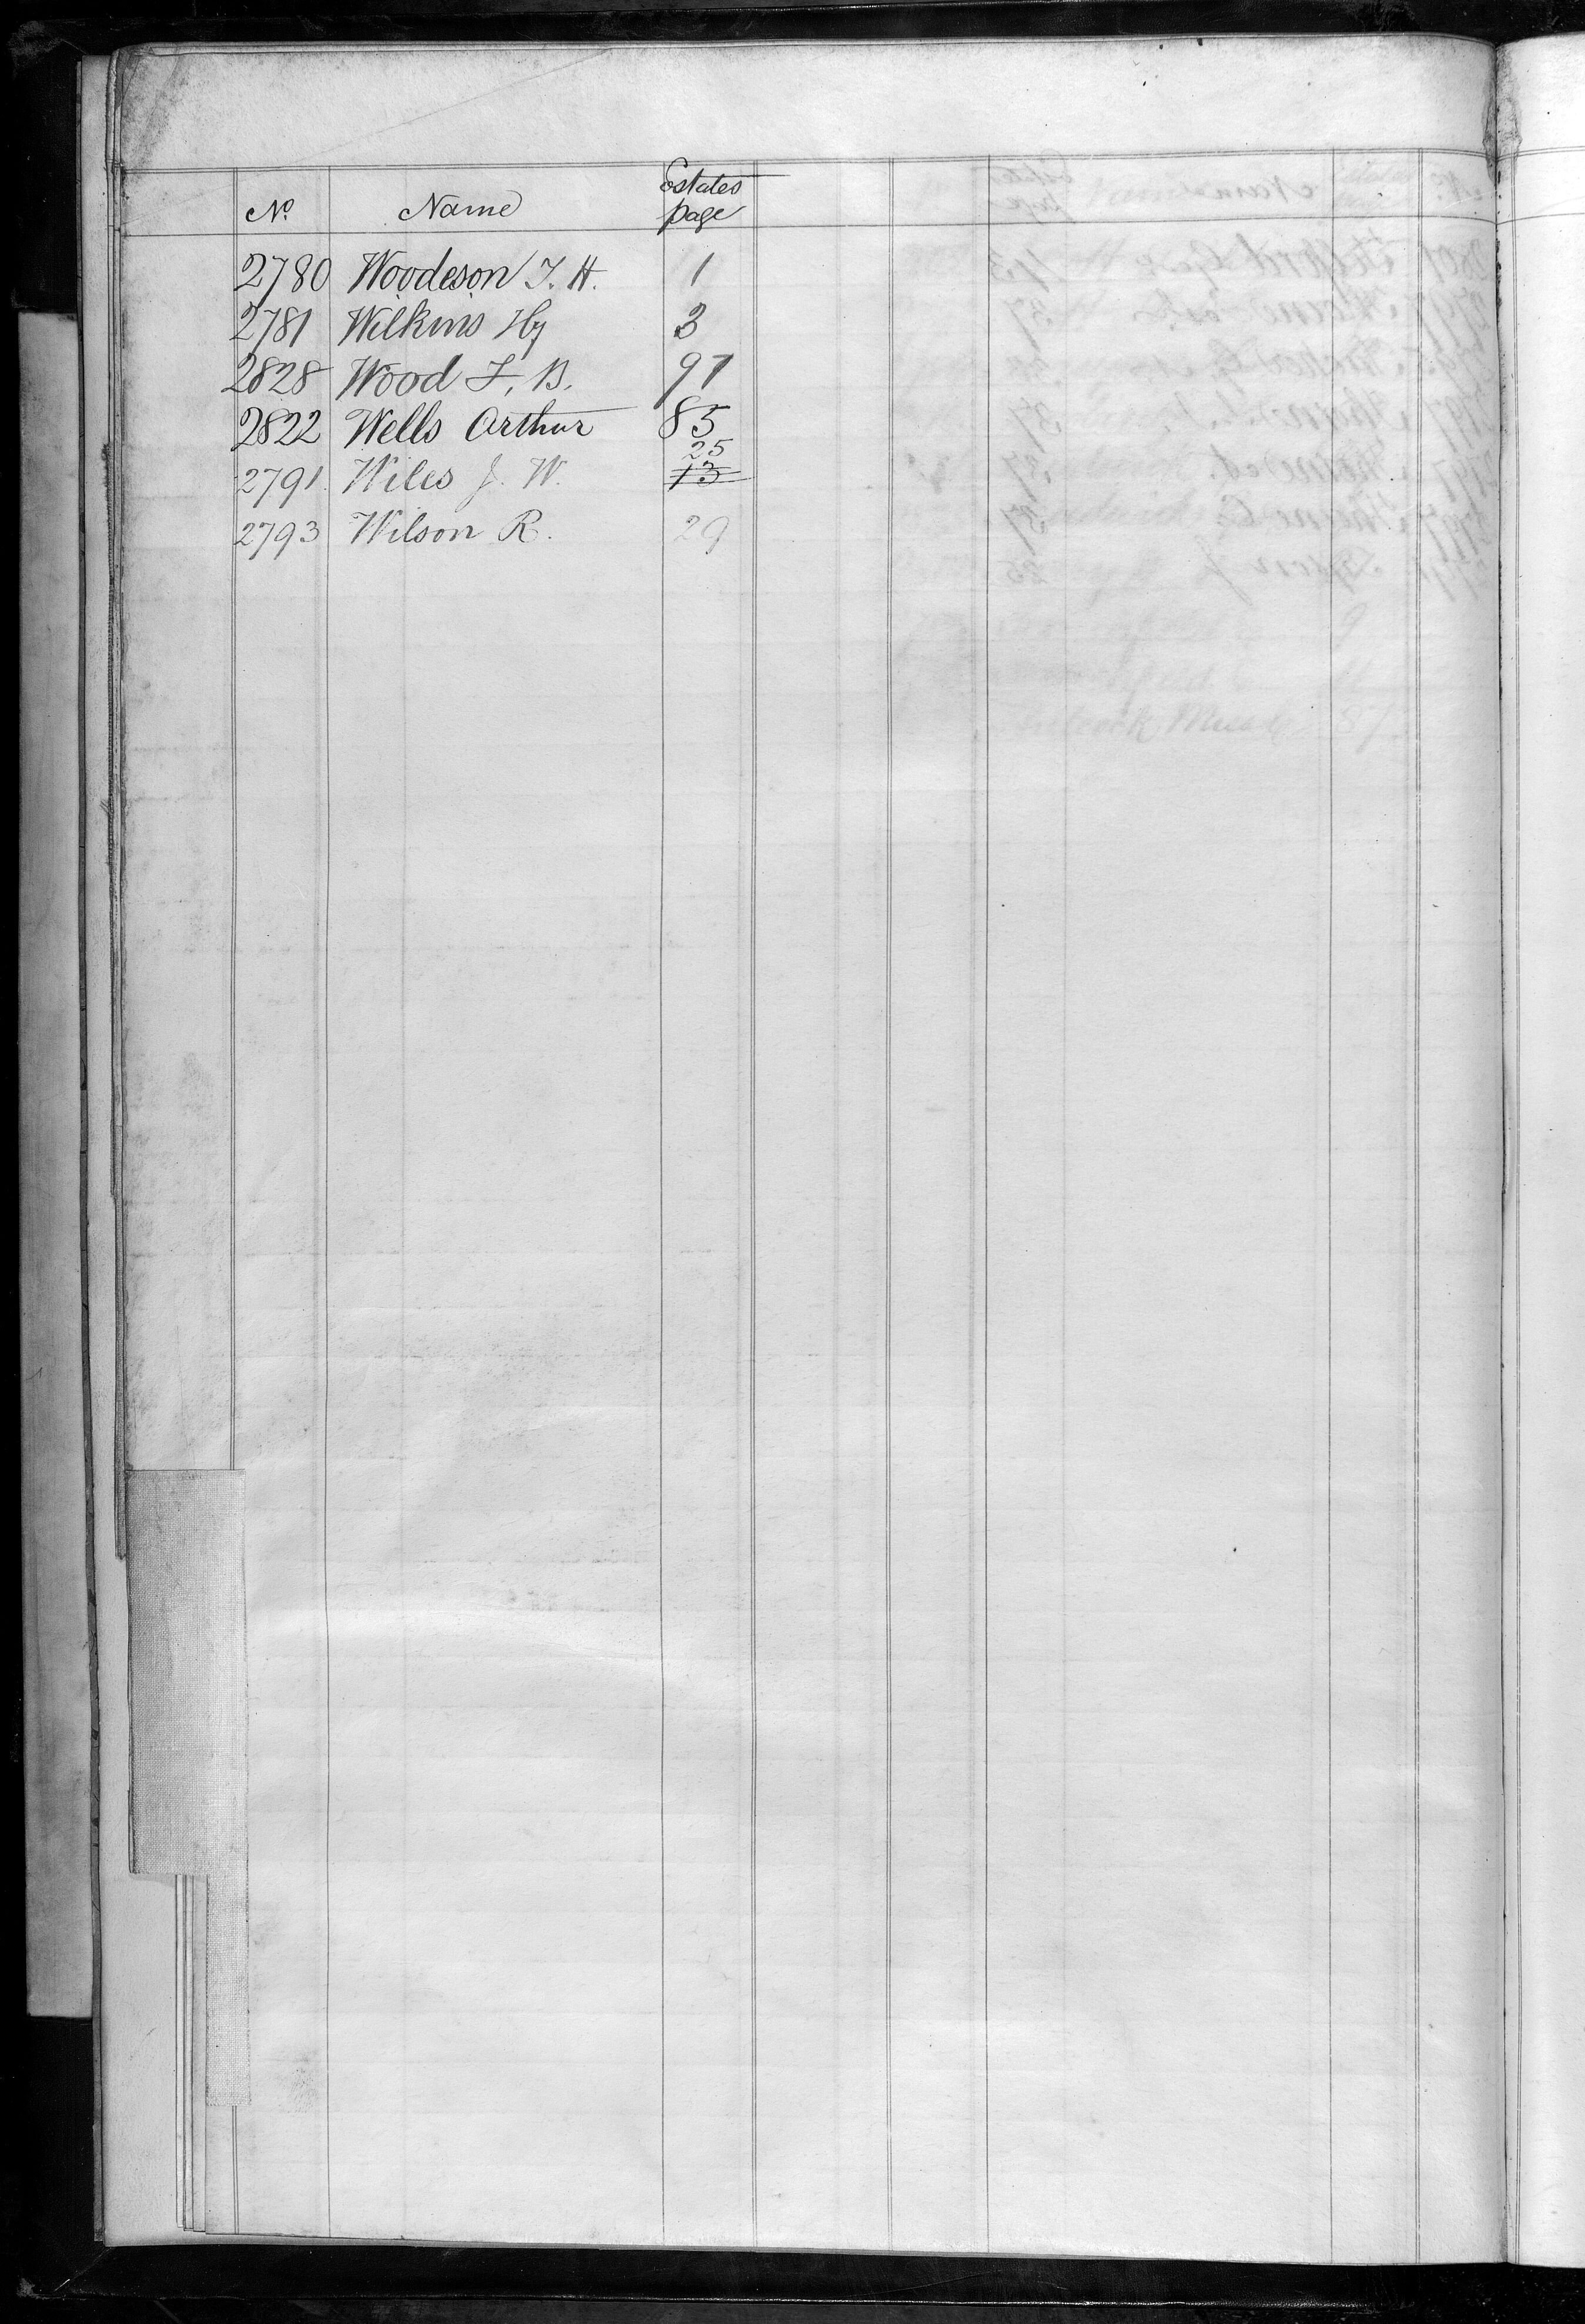 No. Name Estates page
2780 Woodeson T. H. 1
2781 Wilkins Hy 3
2828 Wood F. B. 97
2822 Wells Arthur 85
25
2791 Wiles J. W. 13
2793 Wilson R. 29